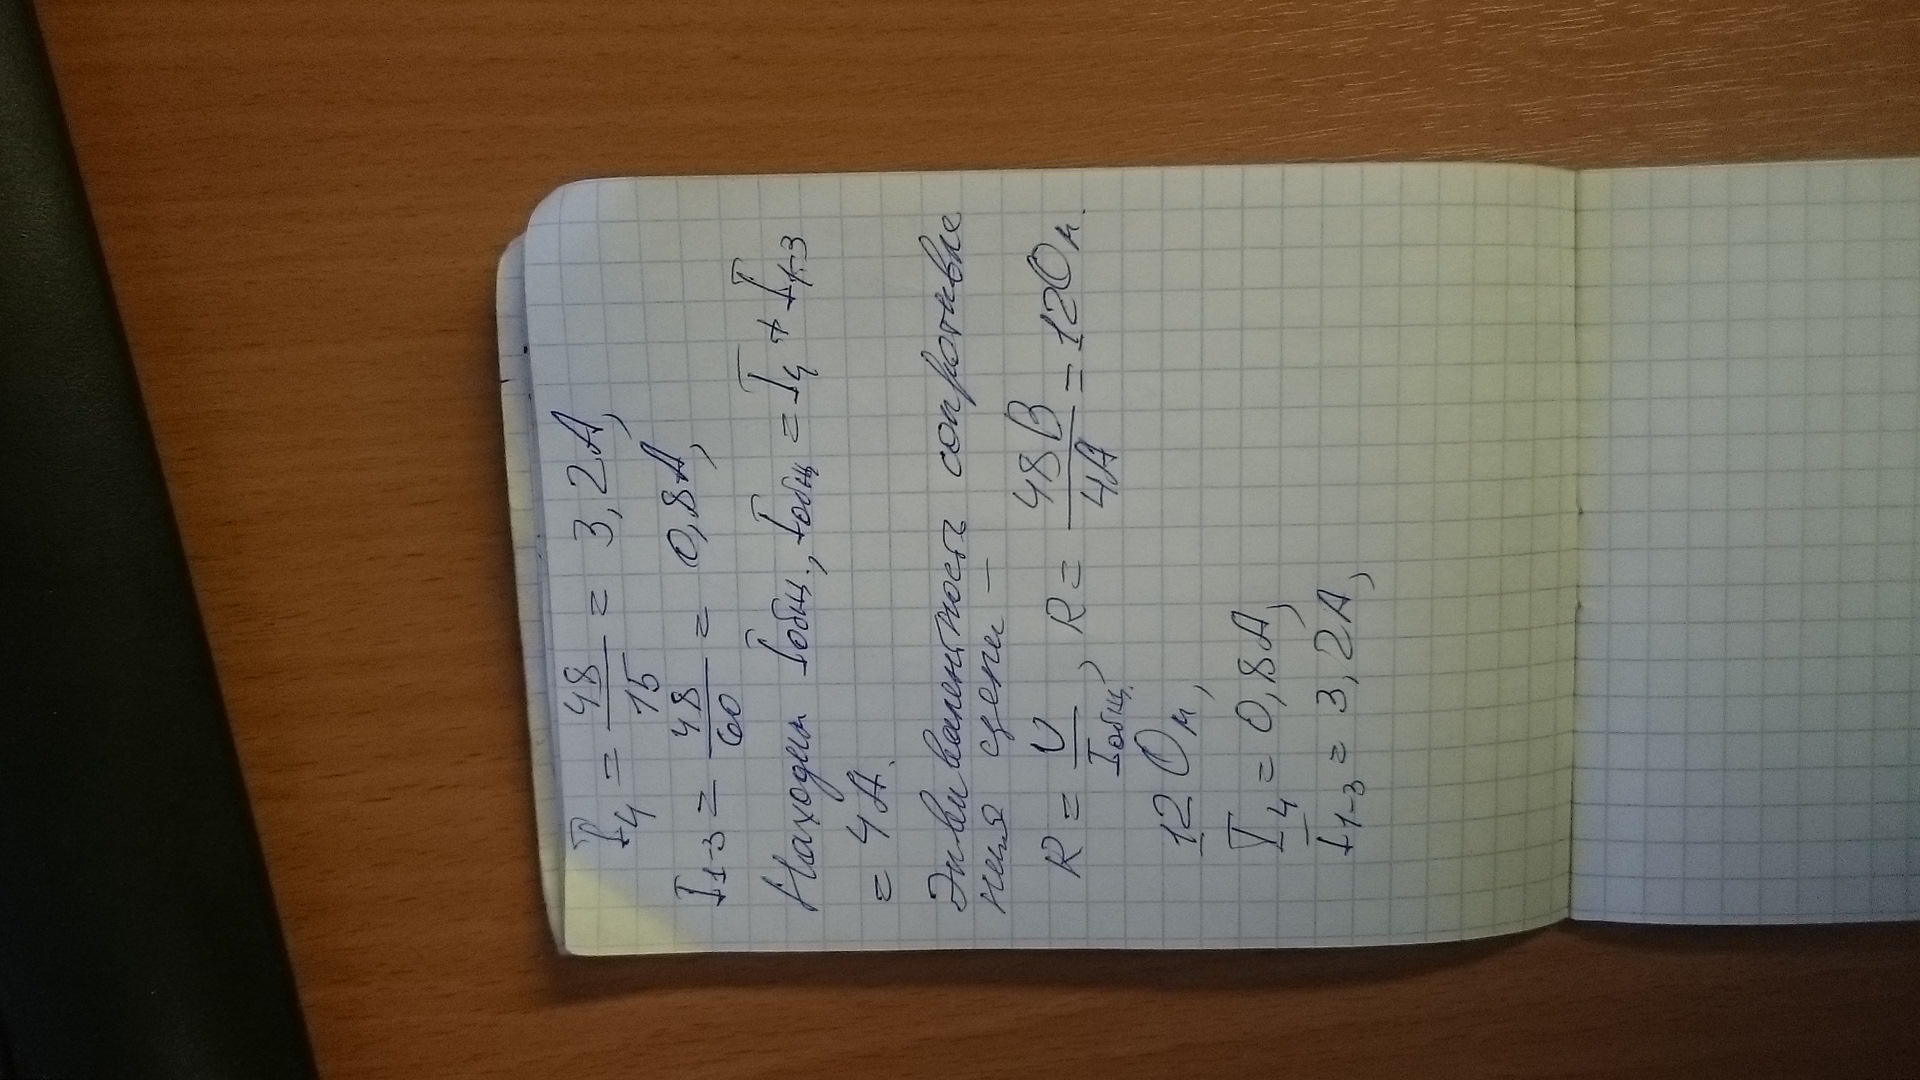 I₄ = 48/15 = 3,2А,
I₁₋₃ = 48/60 = 0,8А,
Находим Iобщ., Iобщ = I₄ + I₁₋₃
= 4А.
Эквивалентность сопротивле
ния цепи –
R = U/Iобщ., R = 48В/4А = 12Ом.
12 Ом,
I₄ = 0,8А,
I₁₋₃ = 3,2А,